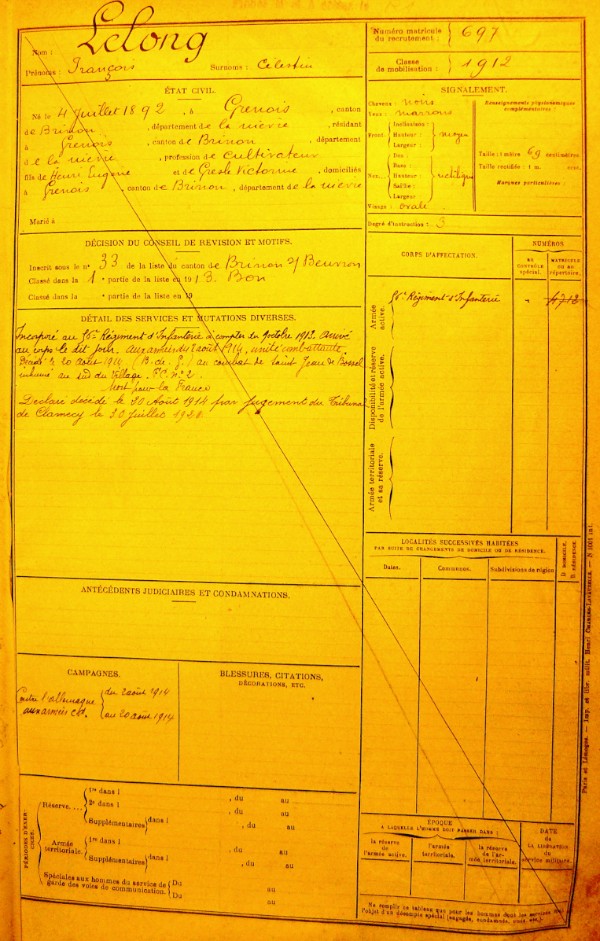 Nom : Lelong
Prénoms : François Surnoms : Célestin
ÉTAT CIVIL.
Né le 4 Juillet 1892, à Grenois, canton
de Brinon, département de la nièvre, résidant
à Grenois, canton de Brinon, département
de la nièvre, profession de Cultivateur
fils de Henri Eugène et de Victorine, domiciliés
à Grenois, canton de Brinon, département de la nièvre
Marié à
DÉCISION DU CONSEIL DE RÉVISION ET MOTIFS.
Inscrit sous le n° 33 de la liste du canton de Brinon s/ Beuvron
Classé dans la 1e partie de la liste en 1913. Bon
Classé dans la • partie de la liste en 19
DÉTAIL DES SERVICES ET MUTATIONS DIVERSES.
Incorporé au Régiment d'Infanterie à compter du 9 octobre 1913. Arrivé
au corps le dit jour. aux armées du 2 août 1914, unité combattante.
Décédé le 20 août 1914 au combat de Saint Jean de
inhumé au sud du village. P.C. n° 2.
Mort pour la France
Déclaré décédé le Août 1914 par jugement du Tribunal
de Clamecy le 30 Juillet 1920.
ANTÉCÉDENTS JUDICIAIRES ET CONDAMNATIONS.
CAMPAGNES.
Contre l'allemagne du 2 août 1914
aux armées au 20 août 1914
BLESSURES, CITATIONS,
DÉCORATIONS, ETC.
PÉRIODES D'EXERCICES.
Réserve....
1re dans l , du au
2e dans l , du au
Supplémentaires dans l , du au
Armée territoriale.
1re dans l , du au
Supplémentaires dans l , du au
Spéciales aux hommes du service de
garde des voies de communication.
Du au
Du au
Numéro matricule
du recrutement : 697
Classe
de mobilisation : 1912
SIGNALEMENT.
Cheveux : noirs
Yeux : marrons
Front.
Inclinaison :
Hauteur : moyen
Largeur :
Nez...
Dos :
Base :
Hauteur : rectiligne
Saillie :
Largeur :
Visage : ovale
Renseignements physionomiques
complémentaires :
Taille : 1 mètre 69 centimètres
Taille rectifiée : 1 m. cent.
Marques particulières :
Degré d'instruction : 3
CORPS D'AFFECTATION.
NUMÉROS
AU CONTRÔLE spécial.
MATRICULE OU AU répertoire.
Armée active.
Régiment d'Infanterie " 4712
Disponibilité et réserve de l'armée active.
Armée territoriale et sa réserve.
LOCALITÉS SUCCESSIVES HABITÉES
PAR SUITE DE CHANGEMENTS DE DOMICILE OU DE RÉSIDENCE.
Dates. Communes. Subdivisions de région. D DOMICILE, R RÉSIDENCE.
ÉPOQUE
A LAQUELLE L'HOMME DOIT PASSER DANS :
la réserve de l'armée active.
l'armée territoriale.
la réserve de l'armée territoriale.
DATE
de
LA LIBÉRATION
du
service militaire.
Paris et Limoges. — Imp. et libr. milit. Henri CHARLES-LAVAUZELLE.